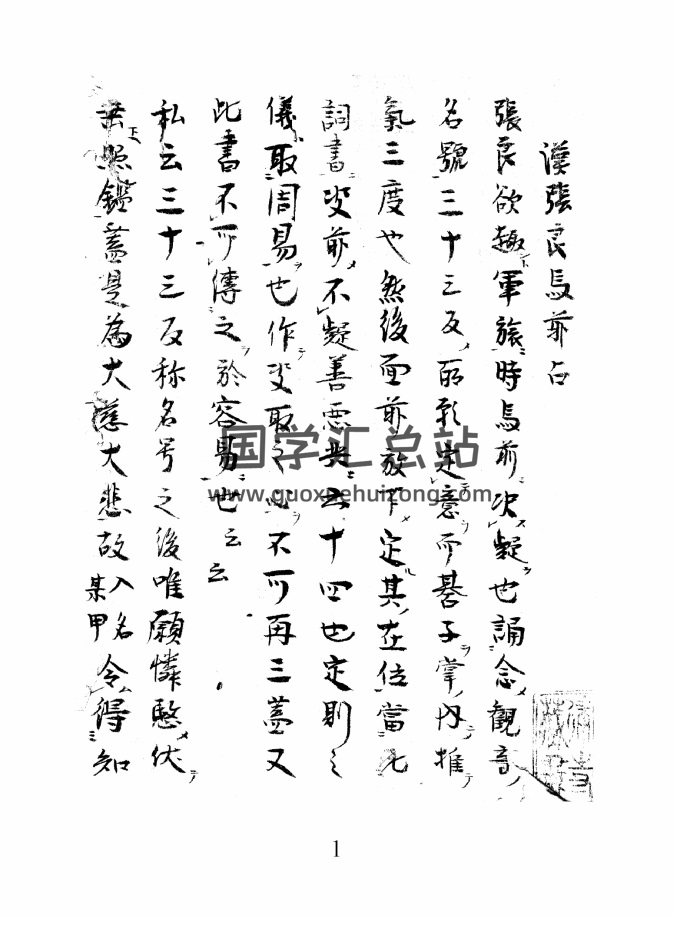 漢張良馬前占
張良欲趣軍旅時馬前决疑也誦念觀音
名號三十三反 定意 碁子掌内推
氣三度也然後面前放下定其在位當
詞書 前不疑善悪 云十四也定則之
儀取周易也作 取之 不可再三蓋又
此書不可傳之於容易也云云
私云三十三反称名号之後唯願憐愍伏
垂照鑑蓋是為大慈大悲故入名某甲令得知
国学汇总站
www.guoxuehuizong.com
1